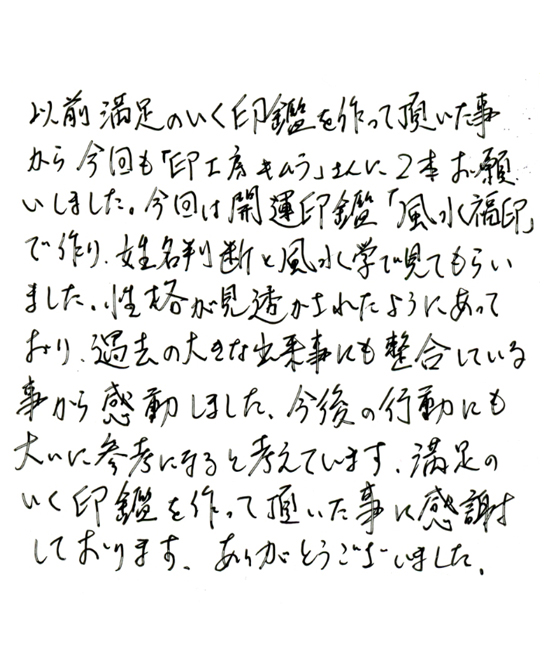 以前満足のいく印鑑を作って頂いた事
から今回も「印工房キムラ」さんに2本お願
いしました。今回は開運印鑑「風水福印」
で作り、姓名判断と風水学で見てもらい
ました。性格が見透かされたようにあって
おり、過去の大きな出来事にも整合している
事から感動しました、今後の行動にも
大いに参考になると考えています、満足の
いく印鑑を作って頂いた事に感謝
しております、ありがとうございました。